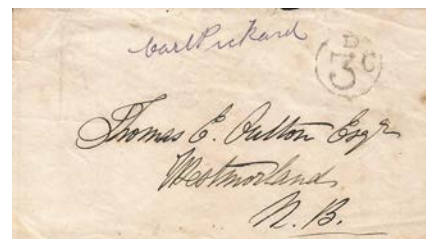 Carl Pickard
D
3 C
Thomas E. Oulton Esqr
Westmorland
N. B.